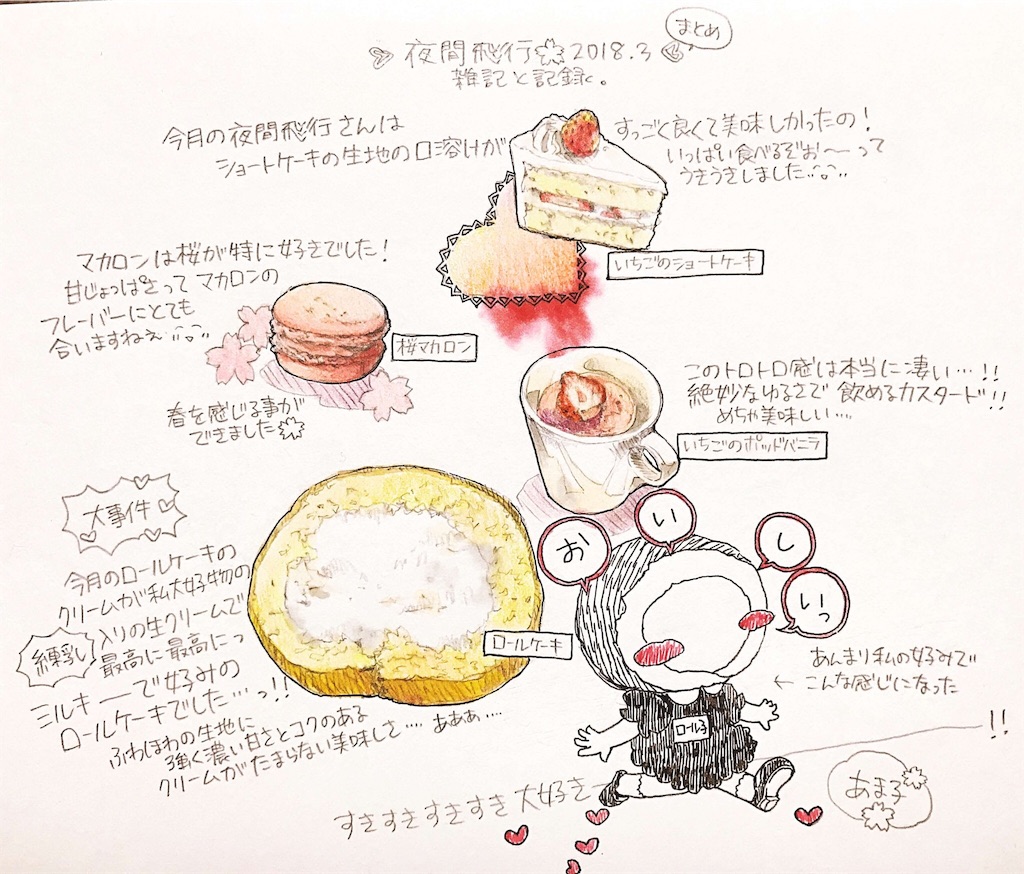 まとめ
夜間飛行 2018.3
雑記と記録。
今月の夜間飛行さんは
ショートケーキの生地の口溶けが
すっごく良くて美味しかったの！
いっぱい食べるぞお〜って
うきうきしました
いちごのショートケーキ
マカロンは桜が特に好きでした！
甘じょっぱさってマカロンの
フレーバーにとても
合いますねぇ
桜マカロン
春を感じる事が
できました
このトロトロ感は本当に凄い…!!
絶妙なゆるさで飲めるカスタード!!
めちゃ美味しい…
いちごのポッドバニラ
大事件
今月のロールケーキの
クリームが私大好物の
練乳入りの生クリームで
最高に最高にっ
ミルキーで好みの
ロールケーキでした…っ!!
ふわほわの生地に
強く濃い甘さとコクのある
クリームがたまらない美味しさ…あぁぁ…
ロールケーキ
お
い
し
いっ
あんまり私の好みで
← こんな感じになった
ロール子
すきすきすきすき大好きー!!
あま子